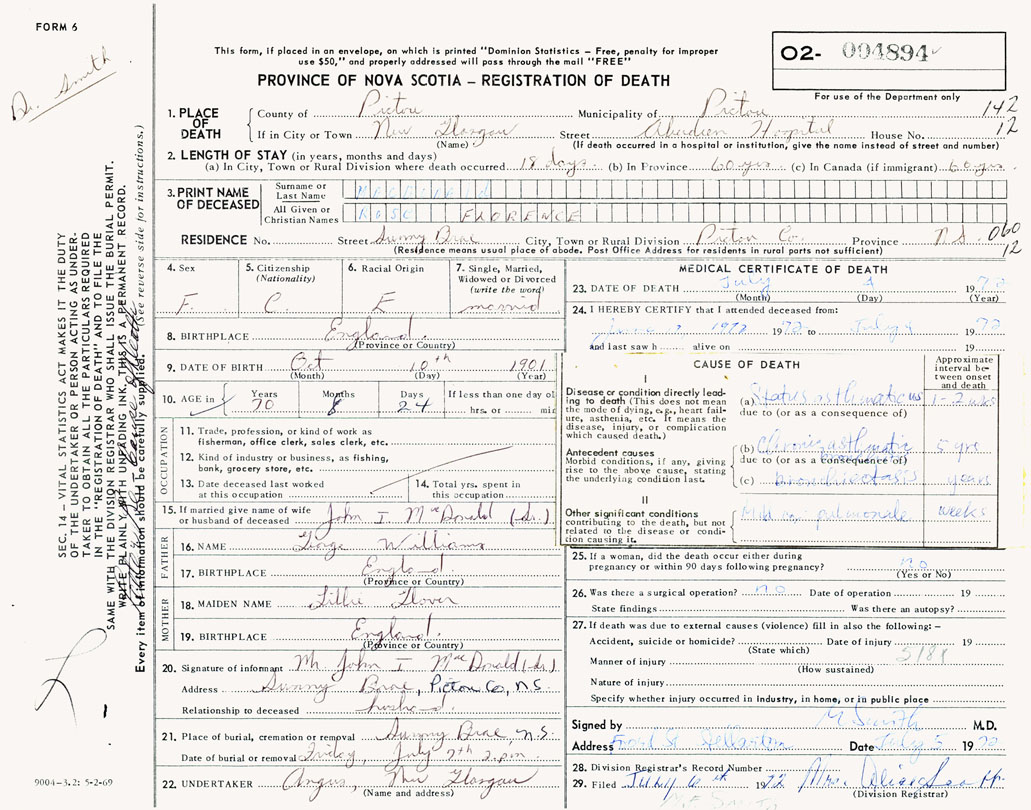 FORM 6
Dr. Smith
This form, if placed in an envelope, on which is printed "Dominion Statistics – Free, penalty for improper
use $50," and properly addressed will pass through the mail "FREE"
PROVINCE OF NOVA SCOTIA – REGISTRATION OF DEATH
02- 004894
For use of the Department only
SEC. 14 – VITAL STATISTICS ACT MAKES IT THE DUTY
OF THE UNDERTAKER OR PERSON ACTING AS UNDER-
TAKER TO OBTAIN ALL THE PARTICULARS REQUIRED
IN THE "REGISTRATION OF DEATH" AND TO FILE THE
SAME WITH THE DIVISION REGISTRAR WHO SHALL ISSUE THE BURIAL PERMIT.
WRITE PLAINLY WITH UNFADING INK, THIS IS A PERMANENT RECORD.
Every item of information should be carefully supplied. (See reverse side for instructions.)
1. PLACE OF DEATH County of Pictou Municipality of Pictou 142
If in City or Town New Glasgow Street Aberdeen Hospital House No. 12
(Name) (If death occurred in a hospital or institution, give the name instead of street and number)
2. LENGTH OF STAY (in years, months and days)
(a) In City, Town or Rural Division where death occurred 18 days (b) In Province 60 yrs. (c) In Canada (if immigrant) 60 yrs.
3. PRINT NAME OF DECEASED
Surname or Last Name
All Given or Christian Names ROSE FLORENCE
RESIDENCE No. Street Sunny Brae City, Town or Rural Division Pictou Co. Province N.S. 060
12
(Residence means usual place of abode. Post Office Address for residents in rural parts not sufficient)
4. Sex F.
5. Citizenship (Nationality) C.
6. Racial Origin E
7. Single, Married, Widowed or Divorced (write the word) married
8. BIRTHPLACE England.
(Province or Country)
9. DATE OF BIRTH Oct 10th 1901
(Month) (Day) (Year)
10. AGE in Years 70 Months 8 Days 24 If less than one day ol
hrs. or min
OCCUPATION
11. Trade, profession, or kind of work as
fisherman, office clerk, sales clerk, etc.
12. Kind of industry or business, as fishing,
bank, grocery store, etc.
13. Date deceased last worked
at this occupation
14. Total yrs. spent in
this occupation
15. If married give name of wife
or husband of deceased John I McDonald (dr.)
FATHER
16. NAME George Williams
17. BIRTHPLACE England.
(Province or Country)
MOTHER
18. MAIDEN NAME Lillie
19. BIRTHPLACE England.
(Province or Country)
20. Signature of informant Mr John I MacDonald (dr.)
Address Sunny Brae, Pictou Co, N.S.
Relationship to deceased husband.
21. Place of burial, cremation or removal Sunny Brae, N.S.
Date of burial or removal Friday, July 7th 2 p.m
22. UNDERTAKER Angus, New Glasgow
(Name and address)
9004-3.2: 5-2-69
MEDICAL CERTIFICATE OF DEATH
23. DATE OF DEATH July 4 1972
(Month) (Day) (Year)
24. I HEREBY CERTIFY that I attended deceased from:
June 1972 1972 to July 4 1972
and last saw h alive on 19
CAUSE OF DEATH
Approximate interval between onset and death
I
Disease or condition directly leading to death (This does not mean the mode of dying, e.g., heart failure, asthenia, etc. It means the disease, injury, or complication which caused death.)
(a) Status asthmaticus 1-2 wks
due to (or as a consequence of)
Antecedent causes
Morbid conditions, if any, giving rise to the above cause, stating the underlying condition last.
(b) Chronic asthmatic 5 yrs
due to (or as a consequence of)
(c) bronchiectasis years
II
Other significant conditions
contributing to the death, but not related to the disease or condition causing it.
Mild cor pulmonale weeks
25. If a woman, did the death occur either during
pregnancy or within 90 days following pregnancy? no
(Yes or No)
26. Was there a surgical operation? no Date of operation 19
State findings Was there an autopsy?
27. If death was due to external causes (violence) fill in also the following: –
Accident, suicide or homicide? Date of injury 19
(State which) 5181
Manner of injury
(How sustained)
Nature of injury
Specify whether injury occurred in industry, in home, or in public place
Signed by M Smith M.D.
Address Foord St Stellarton Date July 5 1972
28. Division Registrar's Record Number
29. Filed July 6th 1972 Mrs.
(Division Registrar)